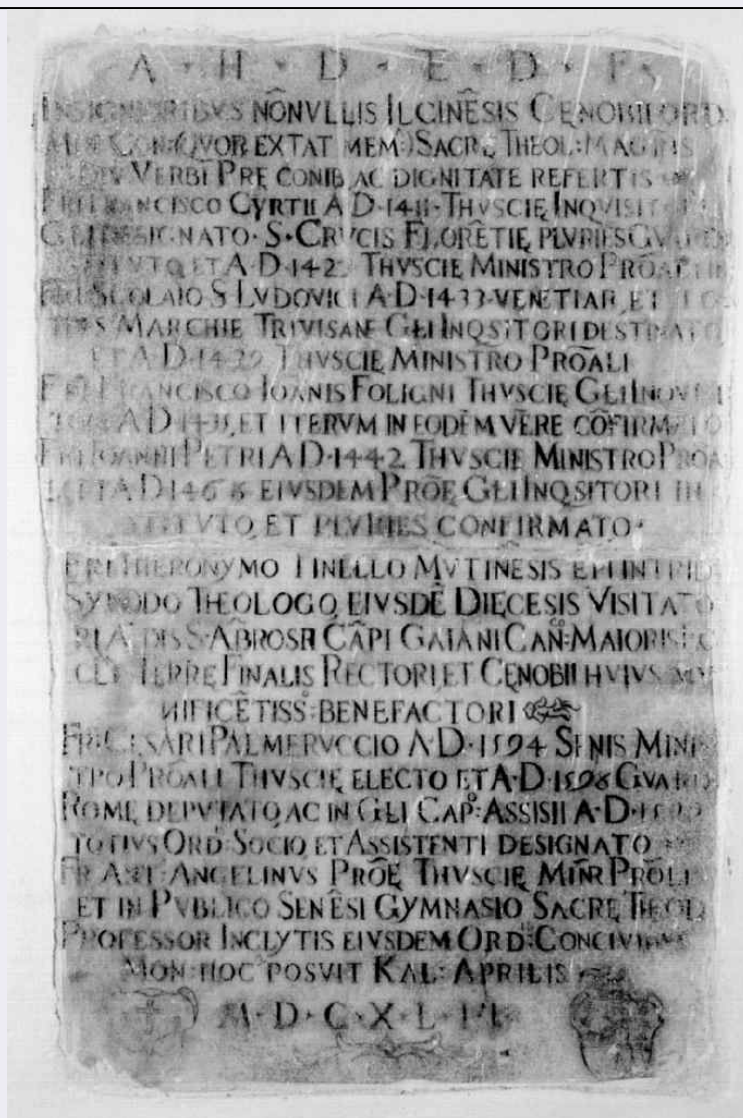 A · H · D · E · D · F
INSIGNIORIBVS NŌNVLLIS ILCINĒSIS CĘNOBII ORD
MIN CON: QVOR EXTAT MEM: SACRĘ THEOL: MAGRIS
DIV VERBI PRĘCONIB AC DIGNITATE REFERTIS
FRI FRANCISCO CYRTII A D · 1411 · THVSCIĘ INQVISIT
GLI DESIGNATO · S · CRVCIS FLORĒTIĘ PLVRIES
ET A D · 142 THVSCIĘ MINISTRO PRŌALI
FRI SCOLAIO S LVDOVICI A D · 1433 · VENETIAR ET
MARCHIE TRIVISANE GLI INQSITORI DESTINATO
ET A D · 1439 THVSCIĘ MINISTRO PRŌALI
FRI FRANCISCO IOANIS FOLIGNI THVSCIĘ GLI INQVISI
A D · 1431, ET ITERVM IN EODEM VERE CŌFIRMATO
FRI IOANNI PETRI A D · 1442 THVSCIĘ MINISTRO PROA
ET A D 146 EIVSDEM PROĒ GLI INQSITORI IN
STITVTO, ET PLVRIES CONFIRMATO ·
FRI HIERONYMO FINELLO MVTINĒSIS EPI IN
SYNODO THEOLOGO, EIVSDĒ DIĘCESIS VISITATO
RI S · ĀBROSII CĀPI GAIANI CAN: MAIORIS
TERRĘ FINALIS RECTORI, ET CĘNOBII HVIVS MV
NIFICĒTISS: BENEFACTORI
FRI CESARI PALMERVCCIO A · D · 1594 SENIS MINI
TRO PROALI THVSCIĘ ELECTO ET A · D · 1596 GVARD
ROMĘ DEPVTATO, AC IN GLI CAP: ASSISII A · D ·
TOTIVS ORD SOCIO, ET ASSISTENTI DESIGNATO
FR ANT: ANGELINVS PROĒ THVSCIĘ MIÑR PRŌLI
ET IN PVBLICO SENĒSI GYMNASIO SACRĘ THEOL
PROFESSOR INCLYTIS EIVSDEM ORD: CONCIVIBVS
MON: HOC POSVIT KAL: APRILIS
M · D · C · X · L ·